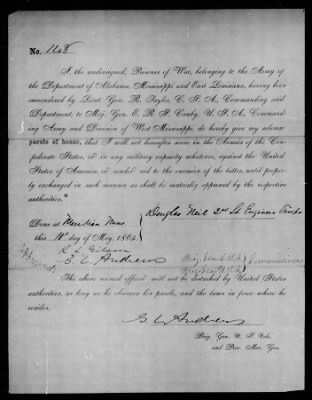 No. 1108
I, the undersigned, Prisoner of War, belonging to the Army of
the Department of Alabama, Mississippi and East Louisiana, having been
surrendered by Lieut. Gen. R. Taylor, C. S. A., Commanding said
Department, to Maj. Gen. E. R. S. Canby, U. S. A., Command-
ing Army and Division of West Mississippi, do hereby give my solemn
parole of honor, that I will not hereafter serve in the Armies of the Con-
federate States, or in any military capacity whatever, against the United
States of America, or render aid to the enemies of the latter, until proper-
ly exchanged in such manner as shall be mutually approved by the respective
authorities."
Douglas 2nd Lt Engineer Troops
Done at Meridian Miss
this 10th day of May, 1865.
Approved:
G. L. Andrews
Brig. Gen. C.S.A.
Brig. Gen. U.S.V.
Commissioners
The above named officer will not be disturbed by United States
authorities, as long as he observes his parole, and the laws in force where he
resides.
G. L. Andrews
Brig. Gen. U. S. Vols.
and Prov. Mar. Gen.